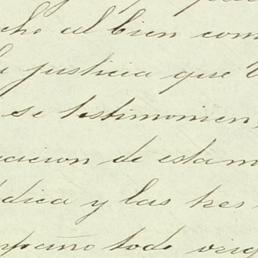 cho al bien com
la justicia que V
se testimonien
cacion de estam
dica y las tres
mpaño todo orig